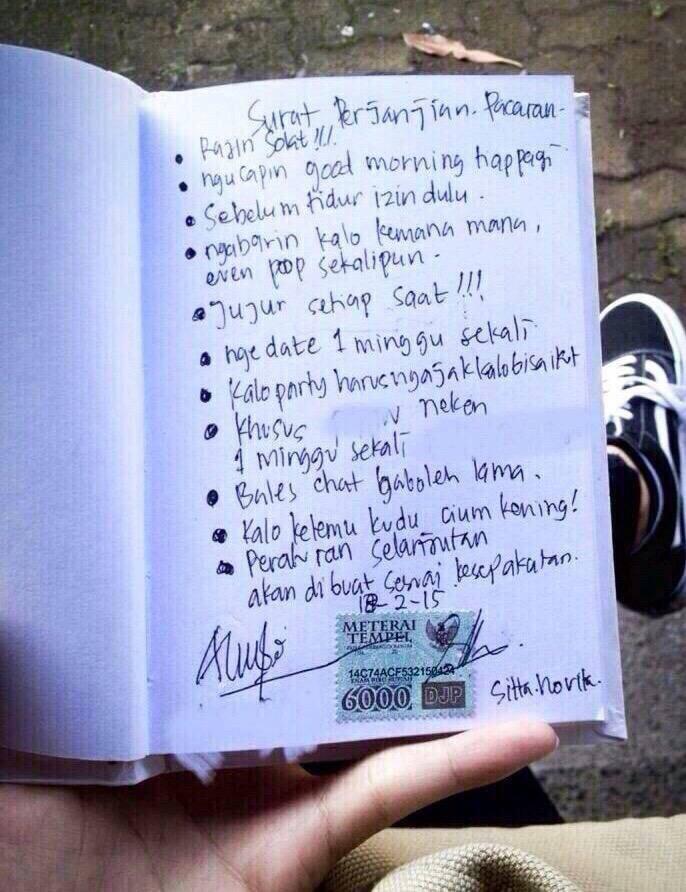 Surat Perjanjian Pacaran
• Rajin Solat!!!
• ngucapin good morning tiap pagi
• Sebelum tidur izin dulu.
• ngabarin kalo kemana mana,
even poop sekalipun.
• Jujur setiap saat!!!
• nge date 1 minggu sekali
• Kalo party harus ngajak kalo bisa ikut
• Khusus neken
1 minggu sekali
• Bales chat gaboleh lama.
• Kalo ketemu kudu cium kening!
• Peraturan selanjutan
akan dibuat sesuai kesepakatan.
18-2-15
METERAI
TEMPEL
14C74ACF532150424
ENAM RIBU RUPIAH
6000 DJP
Sitta.Novita.